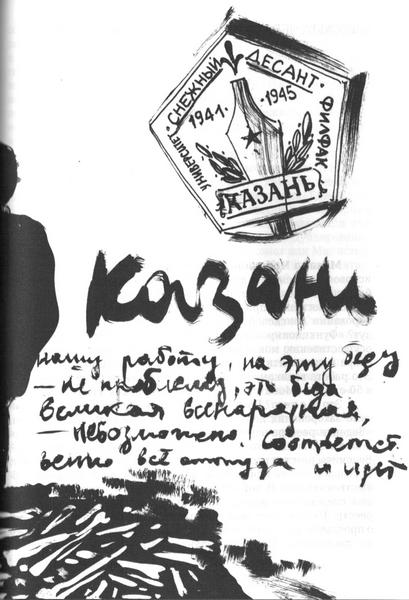 УНИВЕРСИТЕТ СНЕЖНЫЙ ДЕСАНТ ФИЛФАК
1941 · 1945
КАЗАНЬ
Казань
нашу работу, на эту беду
— не проблему, это беда
великая всенародная,
— невозможно. Соответст
венно всё оттуда и идёт